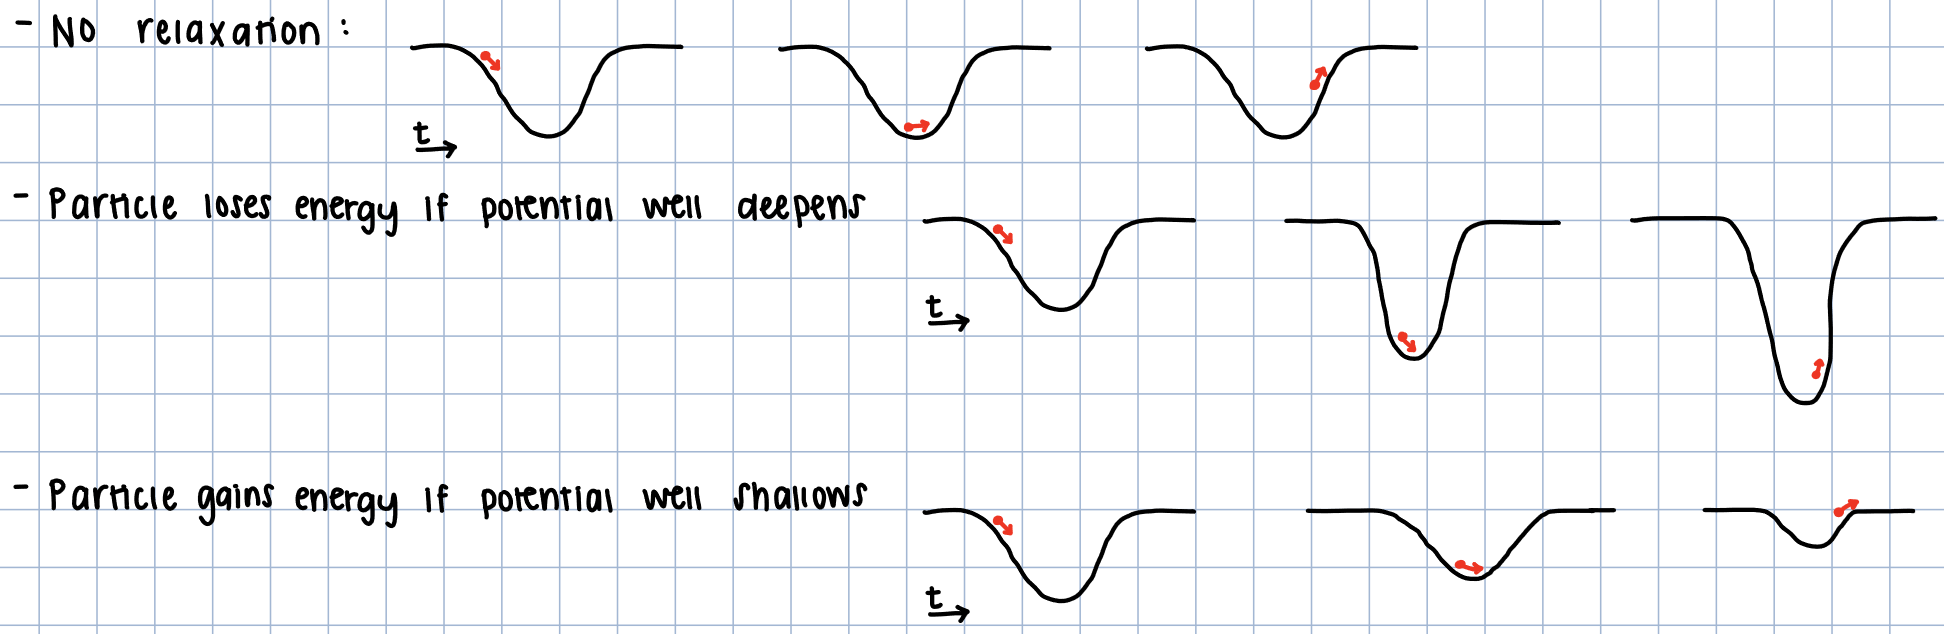 - No relaxation :
t
- Particle loses energy if potential well deepens
t
- Particle gains energy if potential well shallows
t